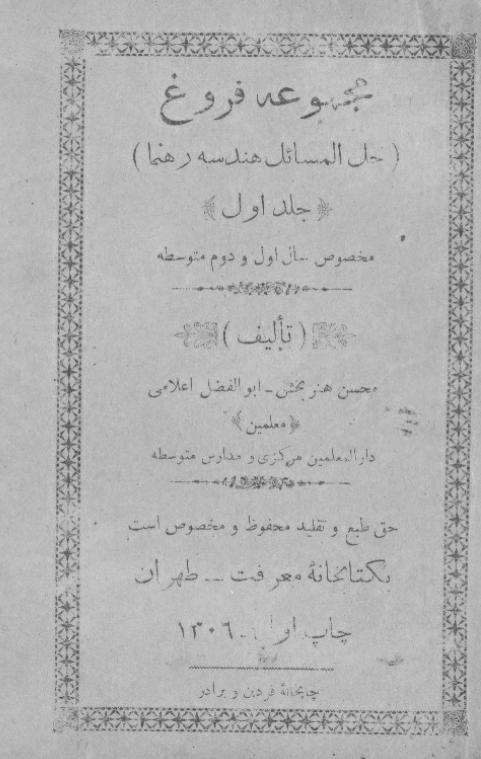 مجموعه فروغ
(حل المسائل هندسه رهنما)
جلد اول
مخصوص سال اول و دوم متوسطه
(تألیف)
محسن هنربخش - ابوالفضل اعلامی
معلمین
دارالمعلمین مرکزی و مدارس متوسطه
حق طبع و تقلید محفوظ و مخصوص است
بکتابخانهٔ معرفت — طهران
چاپ اول - ۱۳۰۶
چاپخانهٔ فردین و برادر